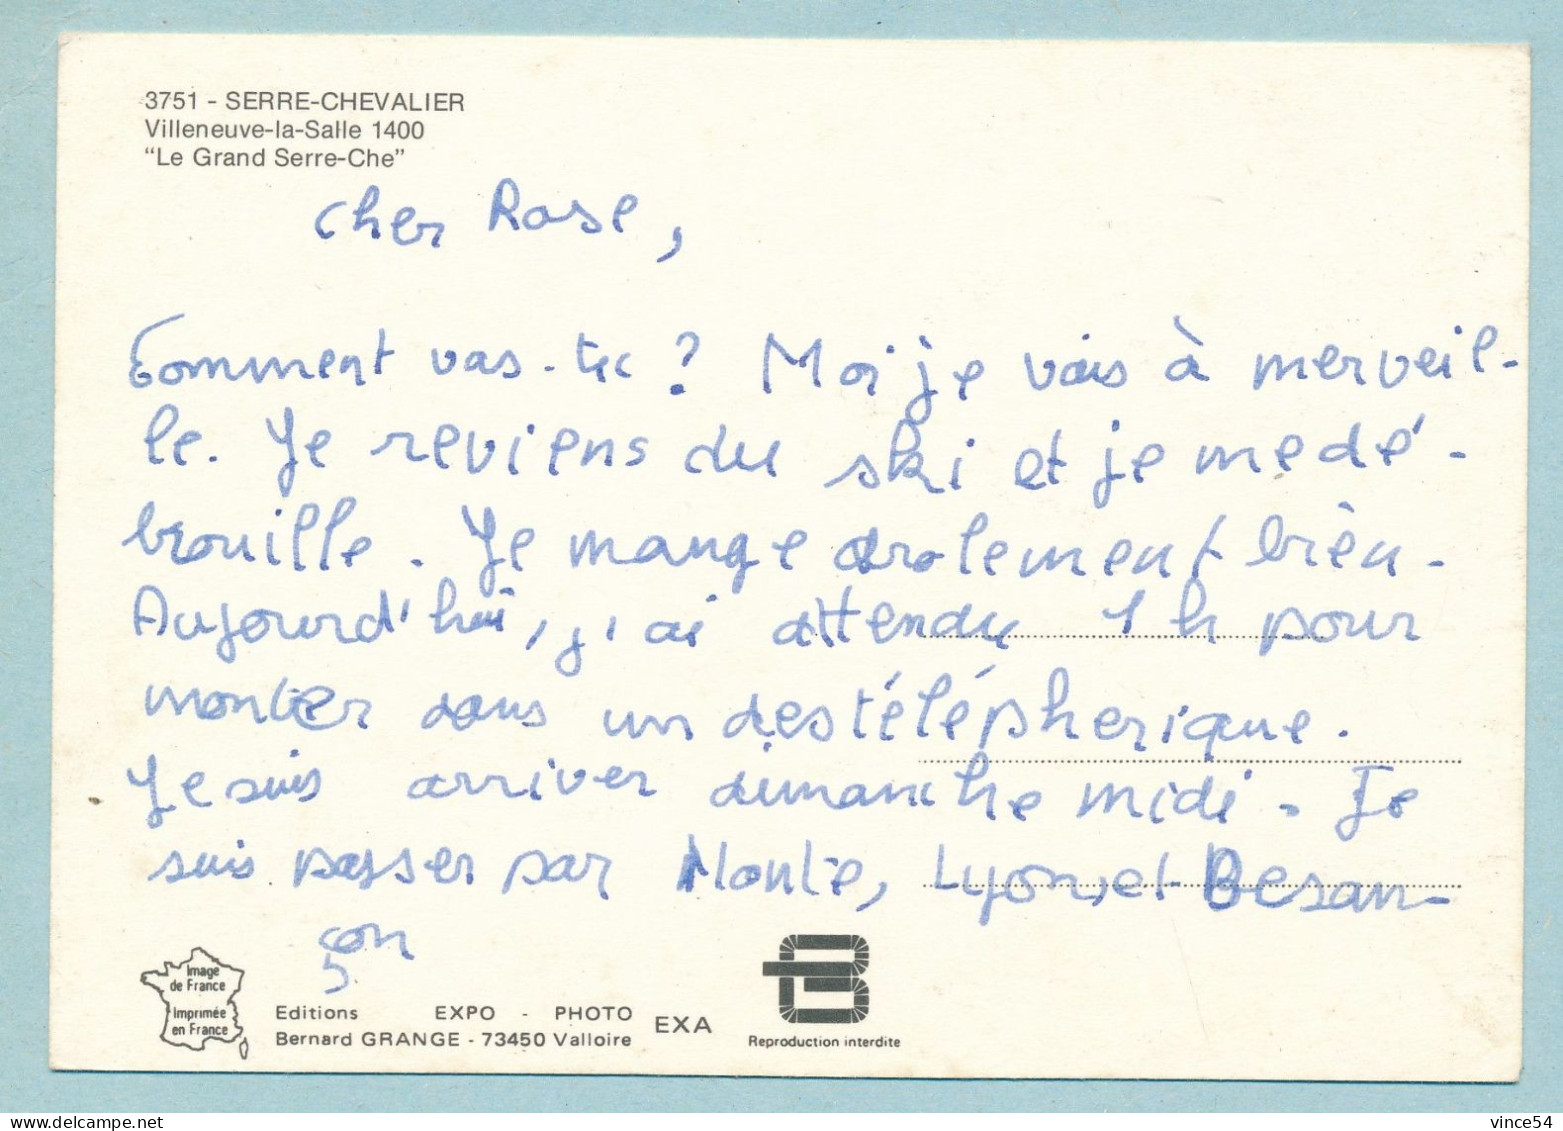 3751 - SERRE-CHEVALIER
Villeneuve-la-Salle 1400
"Le Grand Serre-Che"
cher Rose,
Comment vas-tu ? Moi je vais à merveil-
le. Je reviens du ski et je me dé-
brouille. Je mange drolement bien.
Aujourd'hui, j'ai attendu 1 h pour
monter dans un des téléphérique.
Je suis arriver dimanche midi. Je
suis passer par Lyon, et Besan-
çon
Image
de France
Imprimée
en France
Editions EXPO - PHOTO
Bernard GRANGE - 73450 Valloire
EXA
Reproduction interdite
www.delcampe.net
vince54